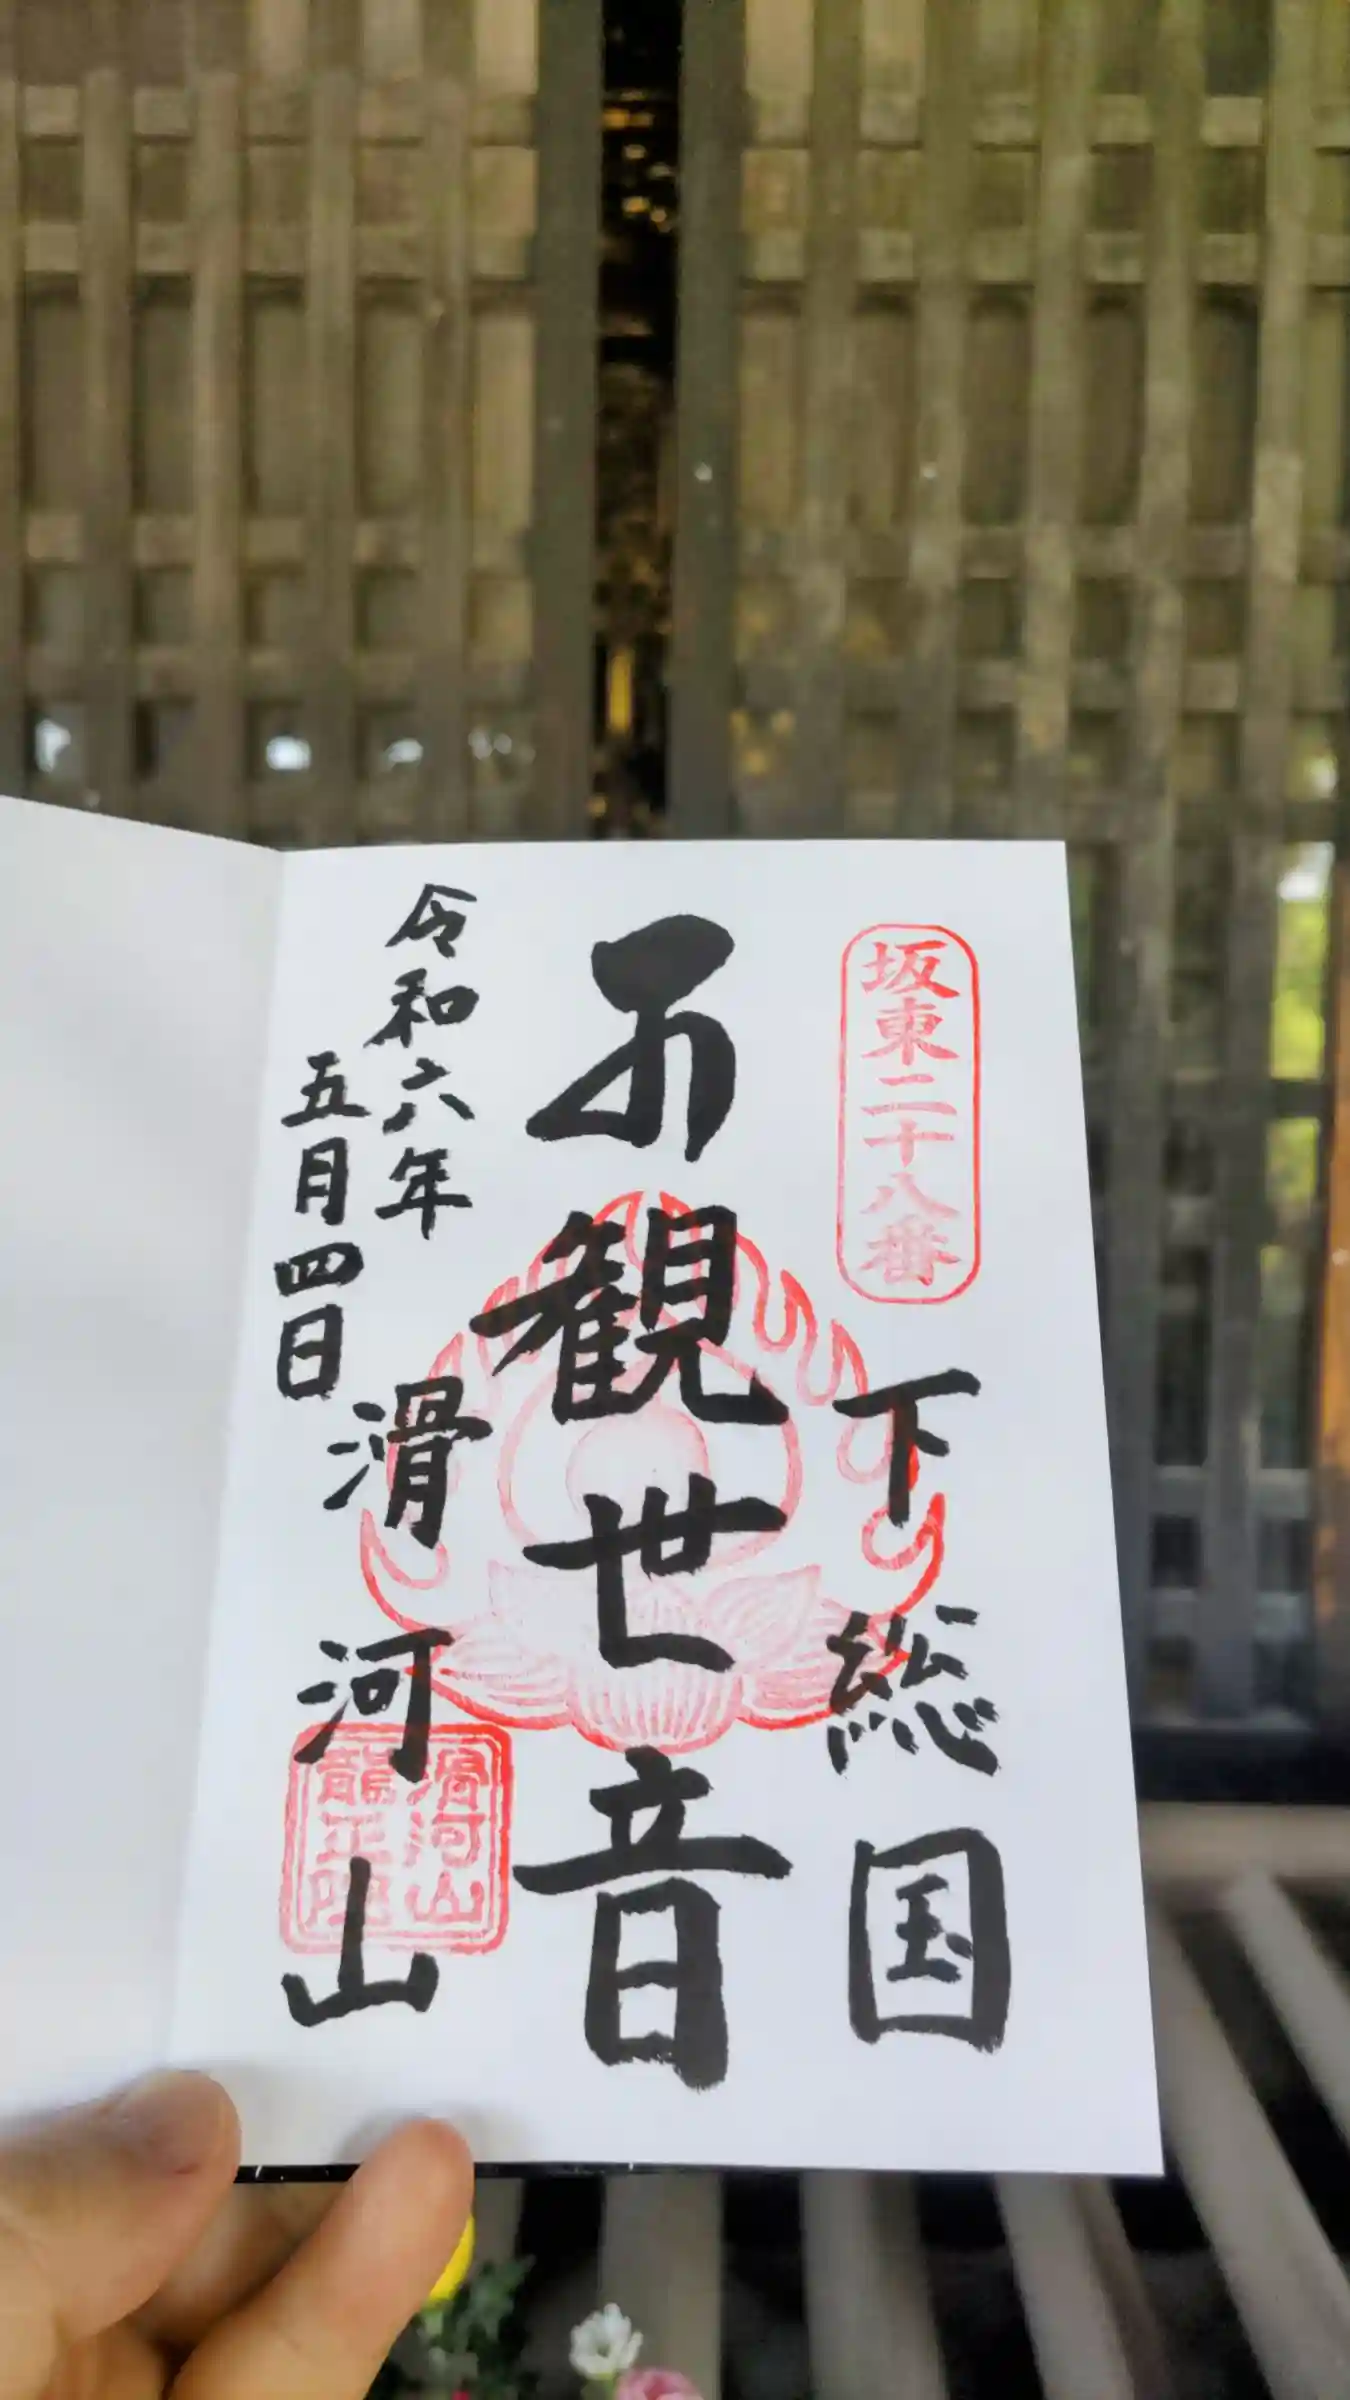 坂東二十八番
下総国
観世音
令和六年
五月四日
滑河山
滑河山
龍正院